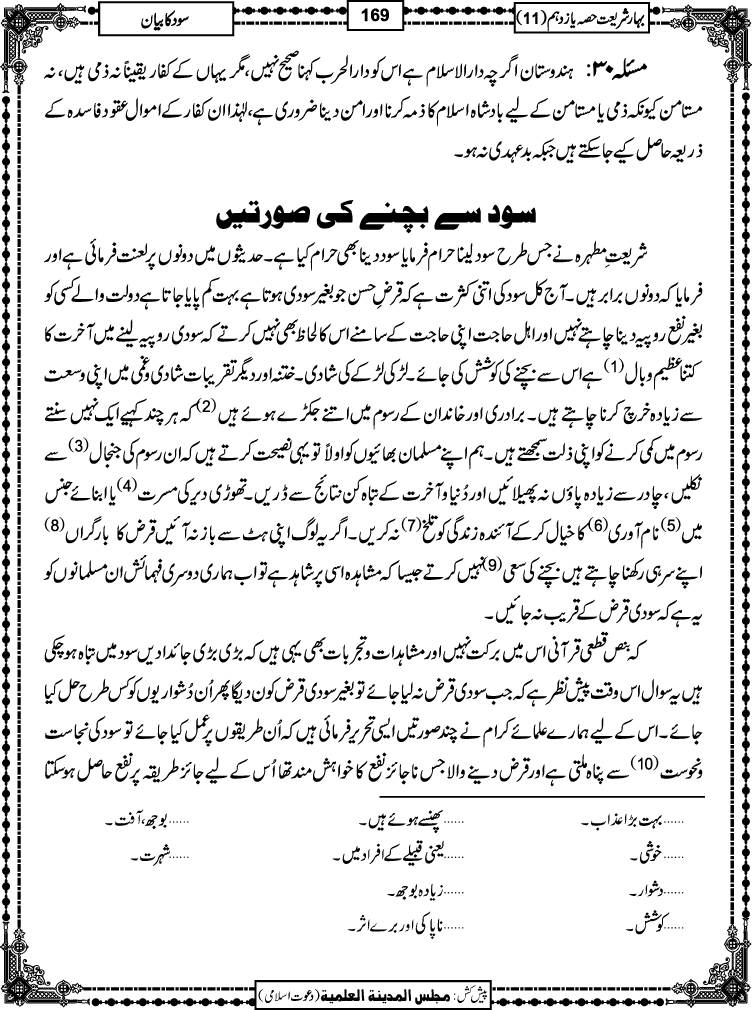 بہار شریعت حصہ یازدہم (11)
169
سود کا بیان
مسئلہ ۳۰: ہندوستان اگرچہ دارالاسلام ہے اس کو دارالحرب کہنا صحیح نہیں، مگر یہاں کے کفار یقیناً نہ ذمی ہیں، نہ
مستامن کیونکہ ذمی یا مستامن کے لیے بادشاہ اسلام کا ذمہ کرنا اور امن دینا ضروری ہے، لہٰذا ان کفار کے اموال عقود فاسدہ کے
ذریعہ حاصل کیے جاسکتے ہیں جبکہ بدعہدی نہ ہو۔
سود سے بچنے کی صورتیں
شریعتِ مطہرہ نے جس طرح سود لینا حرام فرمایا سود دینا بھی حرام کیا ہے۔ حدیثوں میں دونوں پر لعنت فرمائی ہے اور
فرمایا کہ دونوں برابر ہیں۔ آج کل سود کی اتنی کثرت ہے کہ قرضِ حسن جو بغیر سودی ہوتا ہے بہت کم پایا جاتا ہے دولت والے کسی کو
بغیر نفع روپیہ دینا چاہتے نہیں اور اہل حاجت اپنی حاجت کے سامنے اس کا لحاظ بھی نہیں کرتے کہ سودی روپیہ لینے میں آخرت کا
کتنا عظیم وبال (1) ہے اس سے بچنے کی کوشش کی جائے۔ لڑکی لڑکے کی شادی۔ ختنہ اور دیگر تقریبات شادی وغمی میں اپنی وسعت
سے زیادہ خرچ کرنا چاہتے ہیں۔ برادری اور خاندان کے رسوم میں اتنے جکڑے ہوئے ہیں (2) کہ ہر چند کہیے ایک نہیں سنتے
رسوم میں کمی کرنے کو اپنی ذلت سمجھتے ہیں۔ ہم اپنے مسلمان بھائیوں کو اولاً تو یہی نصیحت کرتے ہیں کہ ان رسوم کی جنجال (3) سے
نکلیں، چادر سے زیادہ پاؤں نہ پھیلائیں اور دُنیا و آخرت کے تباہ کن نتائج سے ڈریں۔ تھوڑی دیر کی مسرت (4) یا ابنائے جنس
میں (5) نام آوری (6) کا خیال کر کے آئندہ زندگی کو تلخ (7) نہ کریں۔ اگر یہ لوگ اپنی ہٹ سے باز نہ آئیں قرض کا بارگراں (8)
اپنے سر ہی رکھنا چاہتے ہیں بچنے کی سعی (9) نہیں کرتے جیسا کہ مشاہدہ اسی پر شاہد ہے تو اب ہماری دوسری فہمائش ان مسلمانوں کو
یہ ہے کہ سودی قرض کے قریب نہ جائیں۔
کہ بنص قطعی قرآنی اس میں برکت نہیں اور مشاہدات و تجربات بھی یہی ہیں کہ بڑی بڑی جائدادیں سود میں تباہ ہوچکی
ہیں یہ سوال اس وقت پیش نظر ہے کہ جب سودی قرض نہ لیا جائے تو بغیر سودی قرض کون دیگا پھر اُن دُشواریوں کو کس طرح حل کیا
جائے۔ اس کے لیے ہمارے علمائے کرام نے چند صورتیں ایسی تحریر فرمائی ہیں کہ اُن طریقوں پر عمل کیا جائے تو سود کی نجاست
ونحوست (10) سے پناہ ملتی ہے اور قرض دینے والا جس ناجائز نفع کا خواہش مند تھا اُس کے لیے جائز طریقہ پر نفع حاصل ہوسکتا
......بہت بڑا عذاب۔ ......پھنسے ہوئے ہیں۔ ......بوجھ، آفت۔
......خوشی۔ ......یعنی قبیلے کے افراد میں۔ ......شہرت۔
......دشوار۔ ......زیادہ بوجھ۔
......کوشش۔ ......ناپاکی اور برے اثر۔
پیش کش: مجلس المدینۃ العلمیۃ (دعوت اسلامی)